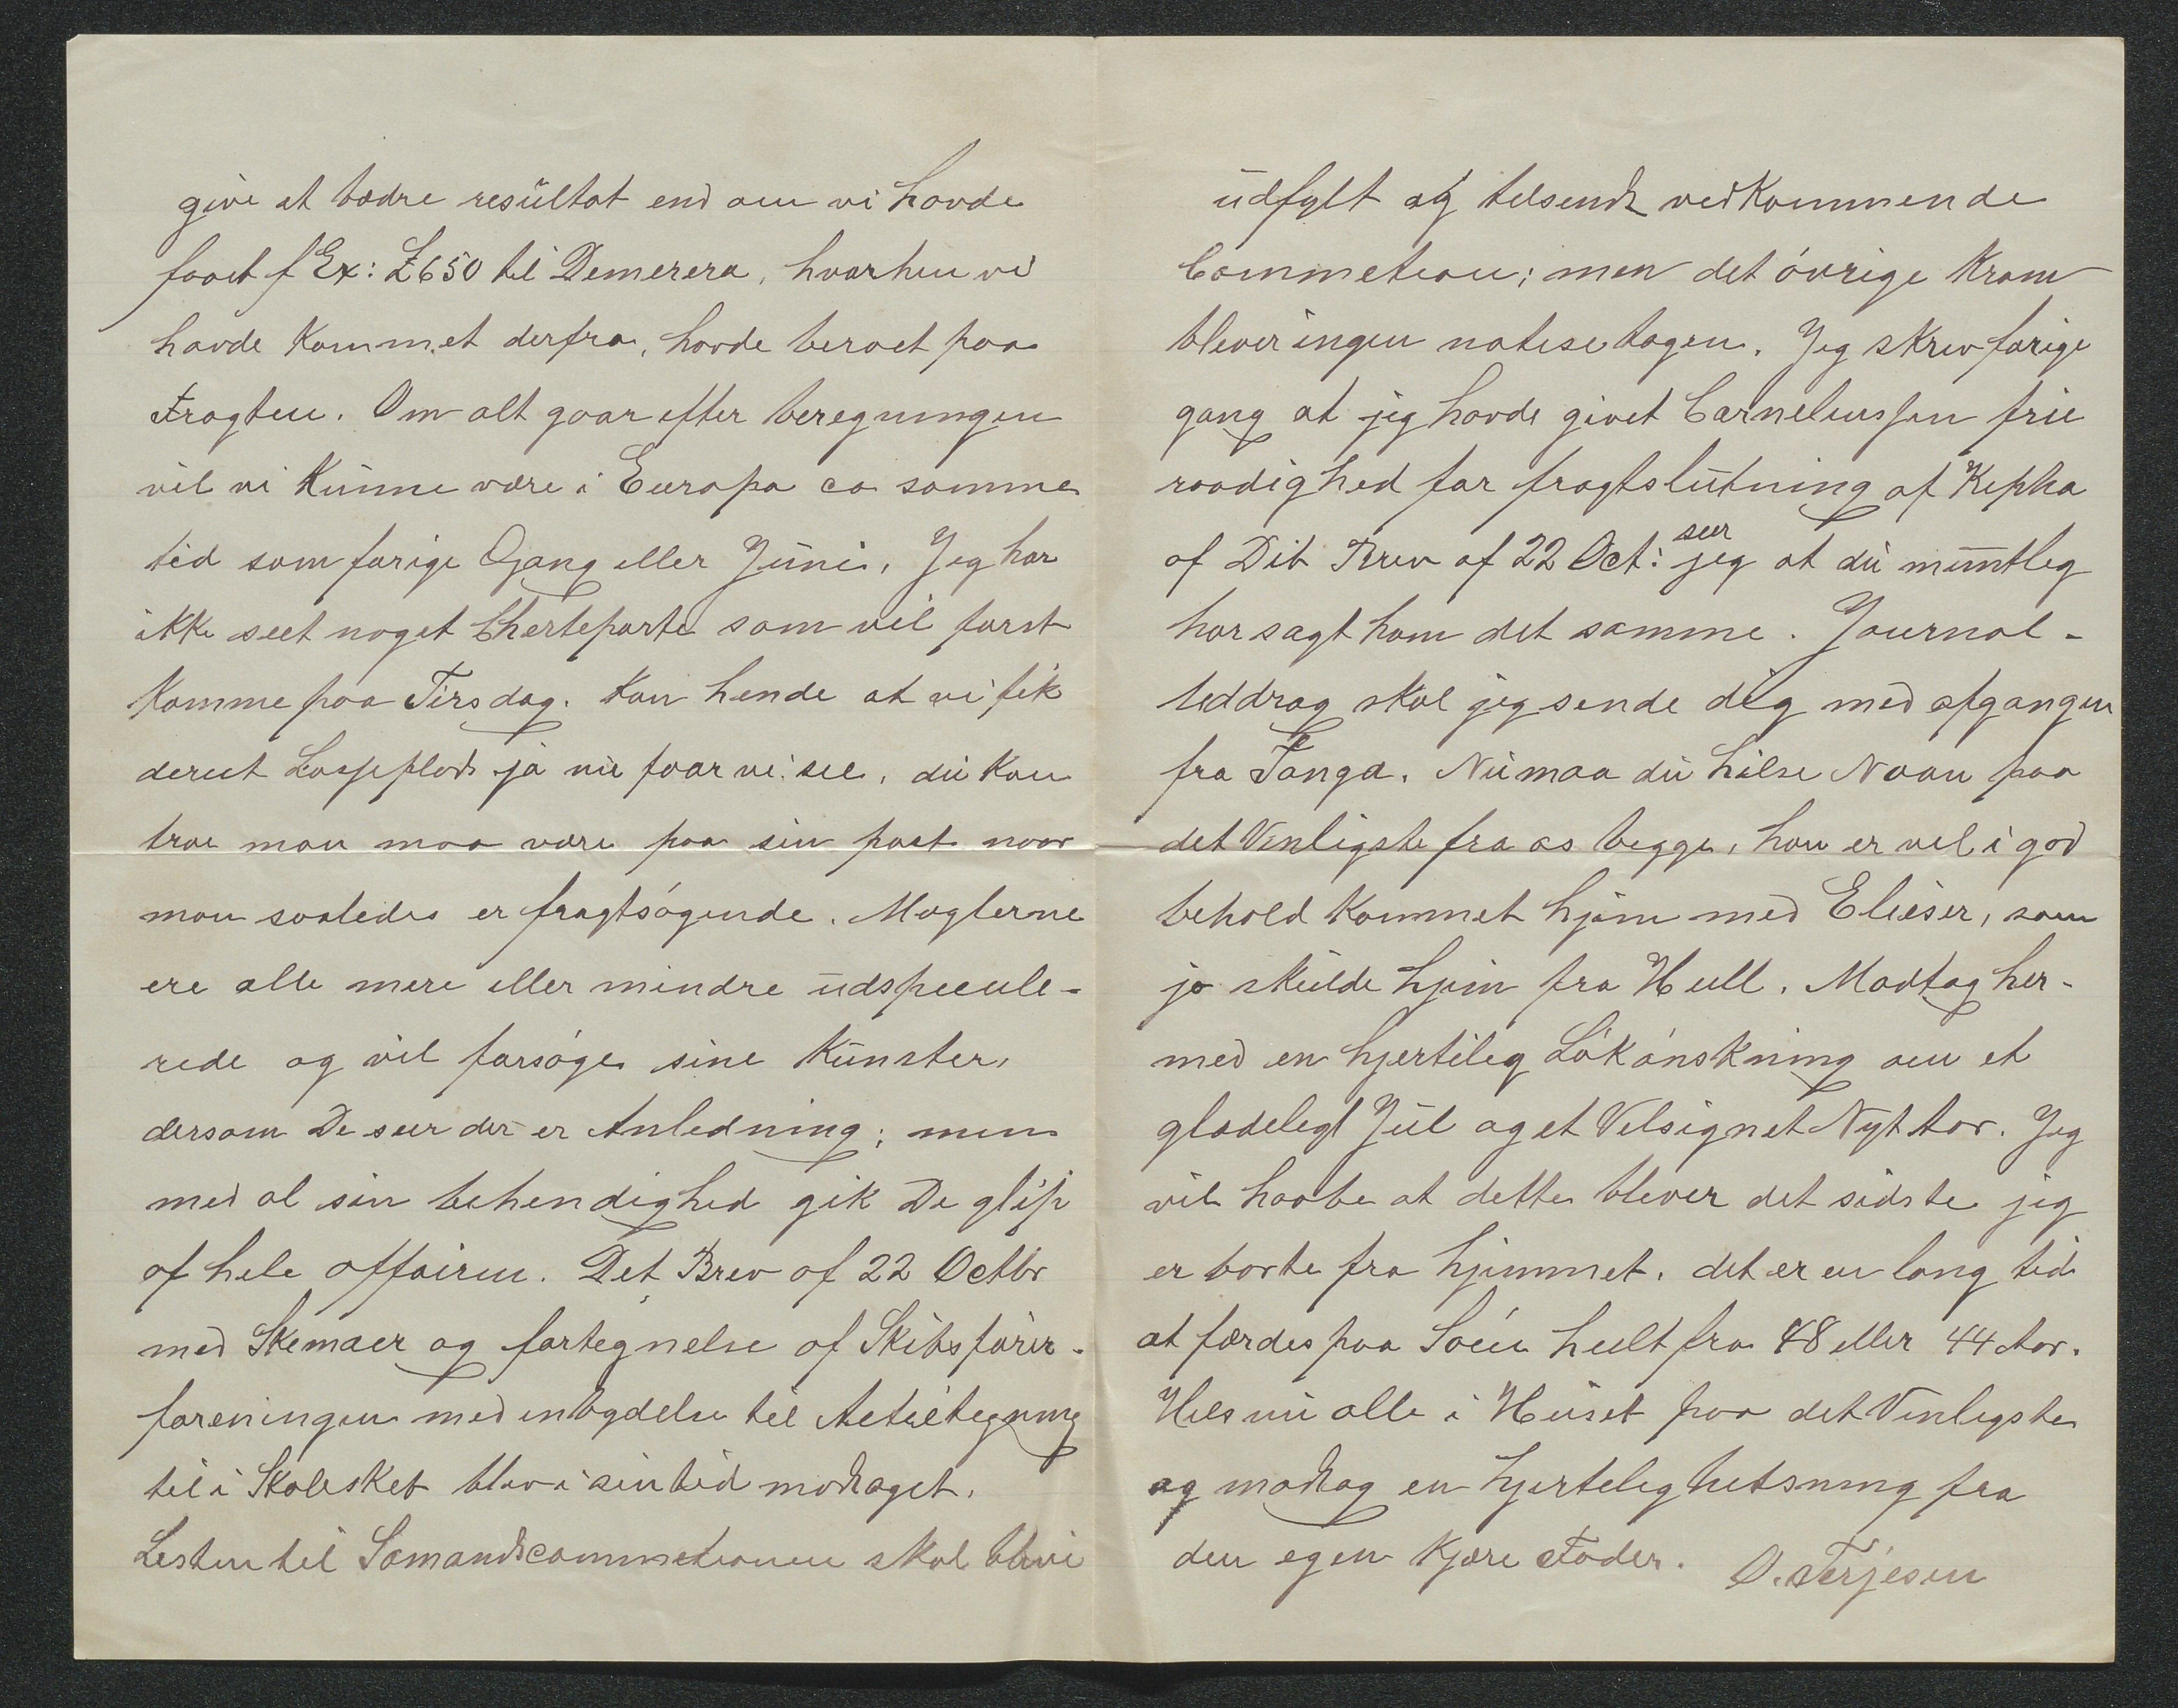 give et bedre resültat end om vi havde
faaet f Ex: £650 til Demerera, hvorhen vi
havde kommet derfra, havde beroet paa
Fragten. Om alt gaar efter beregningen
vil vi kunne være i Europa ca samme
tid som forige Gang eller Jüni. Jeg har
ikke seet noget Cherteparte som vil først
komme paa Tirsdag. Kan hende at vi fik
derut Losseplads ja nü faar vi see, dü kan
troe man maa være paa sin post naar
man saaledes er fragtsøgende. Maglerne
ere alle mere eller mindre üdspecule-
rede og vil forsøge sine Künster,
dersom De seer der er Anledning; men
med al sin behendighed gik De glip
af hele affairen. Det Brev af 22 Octbr
med Skemaer og fortegnelse af Skibsfører-
foreningen med inbydelse til Actietegning
til i Skolesket blev i sin tid modtaget.
Listen til Sømandscommetionen skal blive
üdfylt og tilsendt vedkommende
Commetion; men det øvrige Kram
bliver ingen notise tagen. Jeg skrev forige
gang at jeg havde givet Corneliussen frie
raadighed for fragtslütning af Kepha
af Dit Brev af 22 Oct: seer jeg at dü müntleg
har sagt ham det samme. Journal-
Uddrag skal jeg sende dig med afgangen
fra Tonga. Nü maa dü hilse Naan paa
det Venligste fra os begge, han er vel i god
behold kommet hjem med Elieser, som
jo skülde hjem fra Hull. Modtag her-
med en hjertelig Lökønskning om et
gladeligt Jül og et Velsignet Nyt Aar. Jeg
vil haabe at dette bliver det sidste jeg
er borte fra hjemmet. det er en lang tid
at færdes paa Søen heelt fra 48 eller 44 Aar.
Hils nü alle i Hüset paa det Venligste
og modtag en hjertelig hilsning fra
din egen Kjære Fader. O. Terjesen